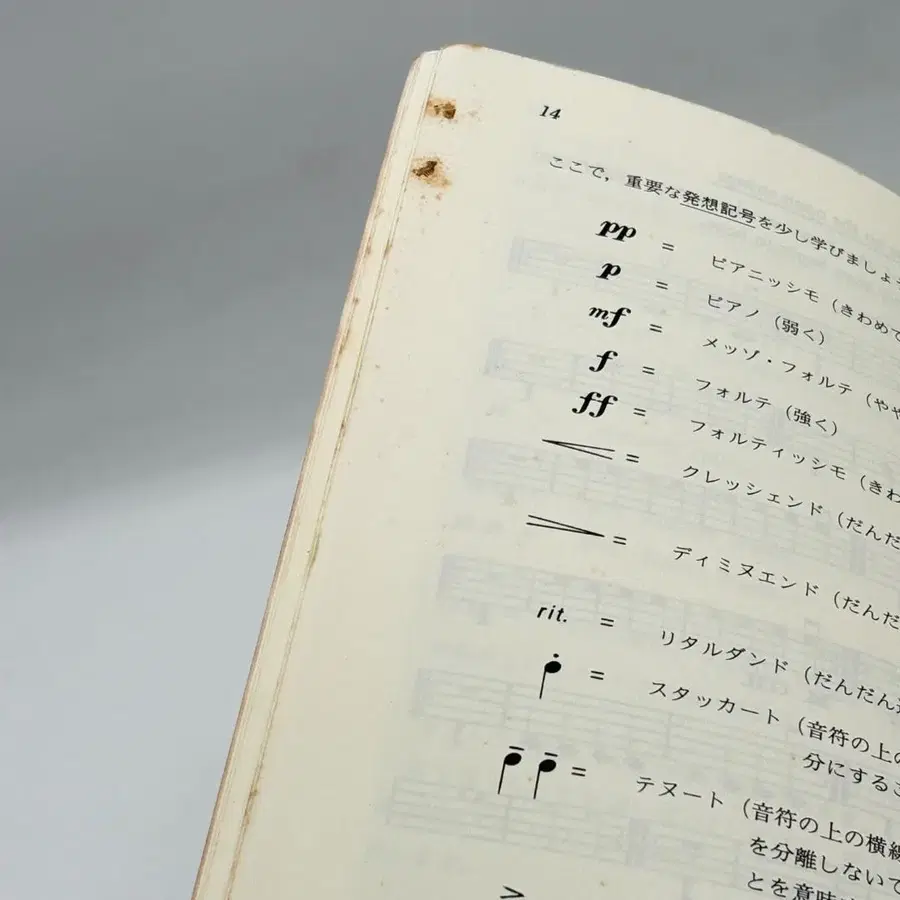 14
ここで，重要な発想記号を少し学びましょう
pp = ピアニッシモ（きわめて
p = ピアノ（弱く）
mf = メッゾ・フォルテ（やや
f = フォルテ（強く）
ff = フォルティッシモ（きわ
= クレッシェンド（だんだ
= ディミヌエンド（だんだ
rit. = リタルダンド（だんだん
= スタッカート（音符の上の
分にするこ
= テヌート（音符の上の横線
を分離しないで
とを意味